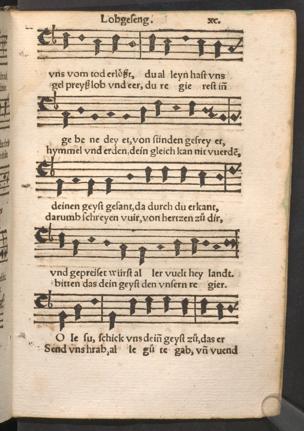 Lobgeseng. xc.
vns vom tod erlößt, du al leyn hast vns
gel preyß lob vnd eer, du re gie rest in̄
ge be ne dey et, von sünden gefrey et,
hymmel vnd erden, dein gleich kan nit vuerdē,
deinen geyst gesant, da durch du erkant,
darumb schreyen vuir, von hertzen zů dir,
vnd gepreiset würst al ler vuelt hey landt.
bitten das dein geyst den vnsern re gier.
O Ie su, schick vns dein̄ geyst zů, das er
Send vns hrab, al le gů te gab, vn̄ vuend